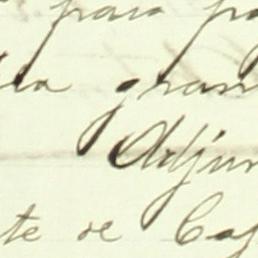 para pa
gran
Adjun
te de Caj